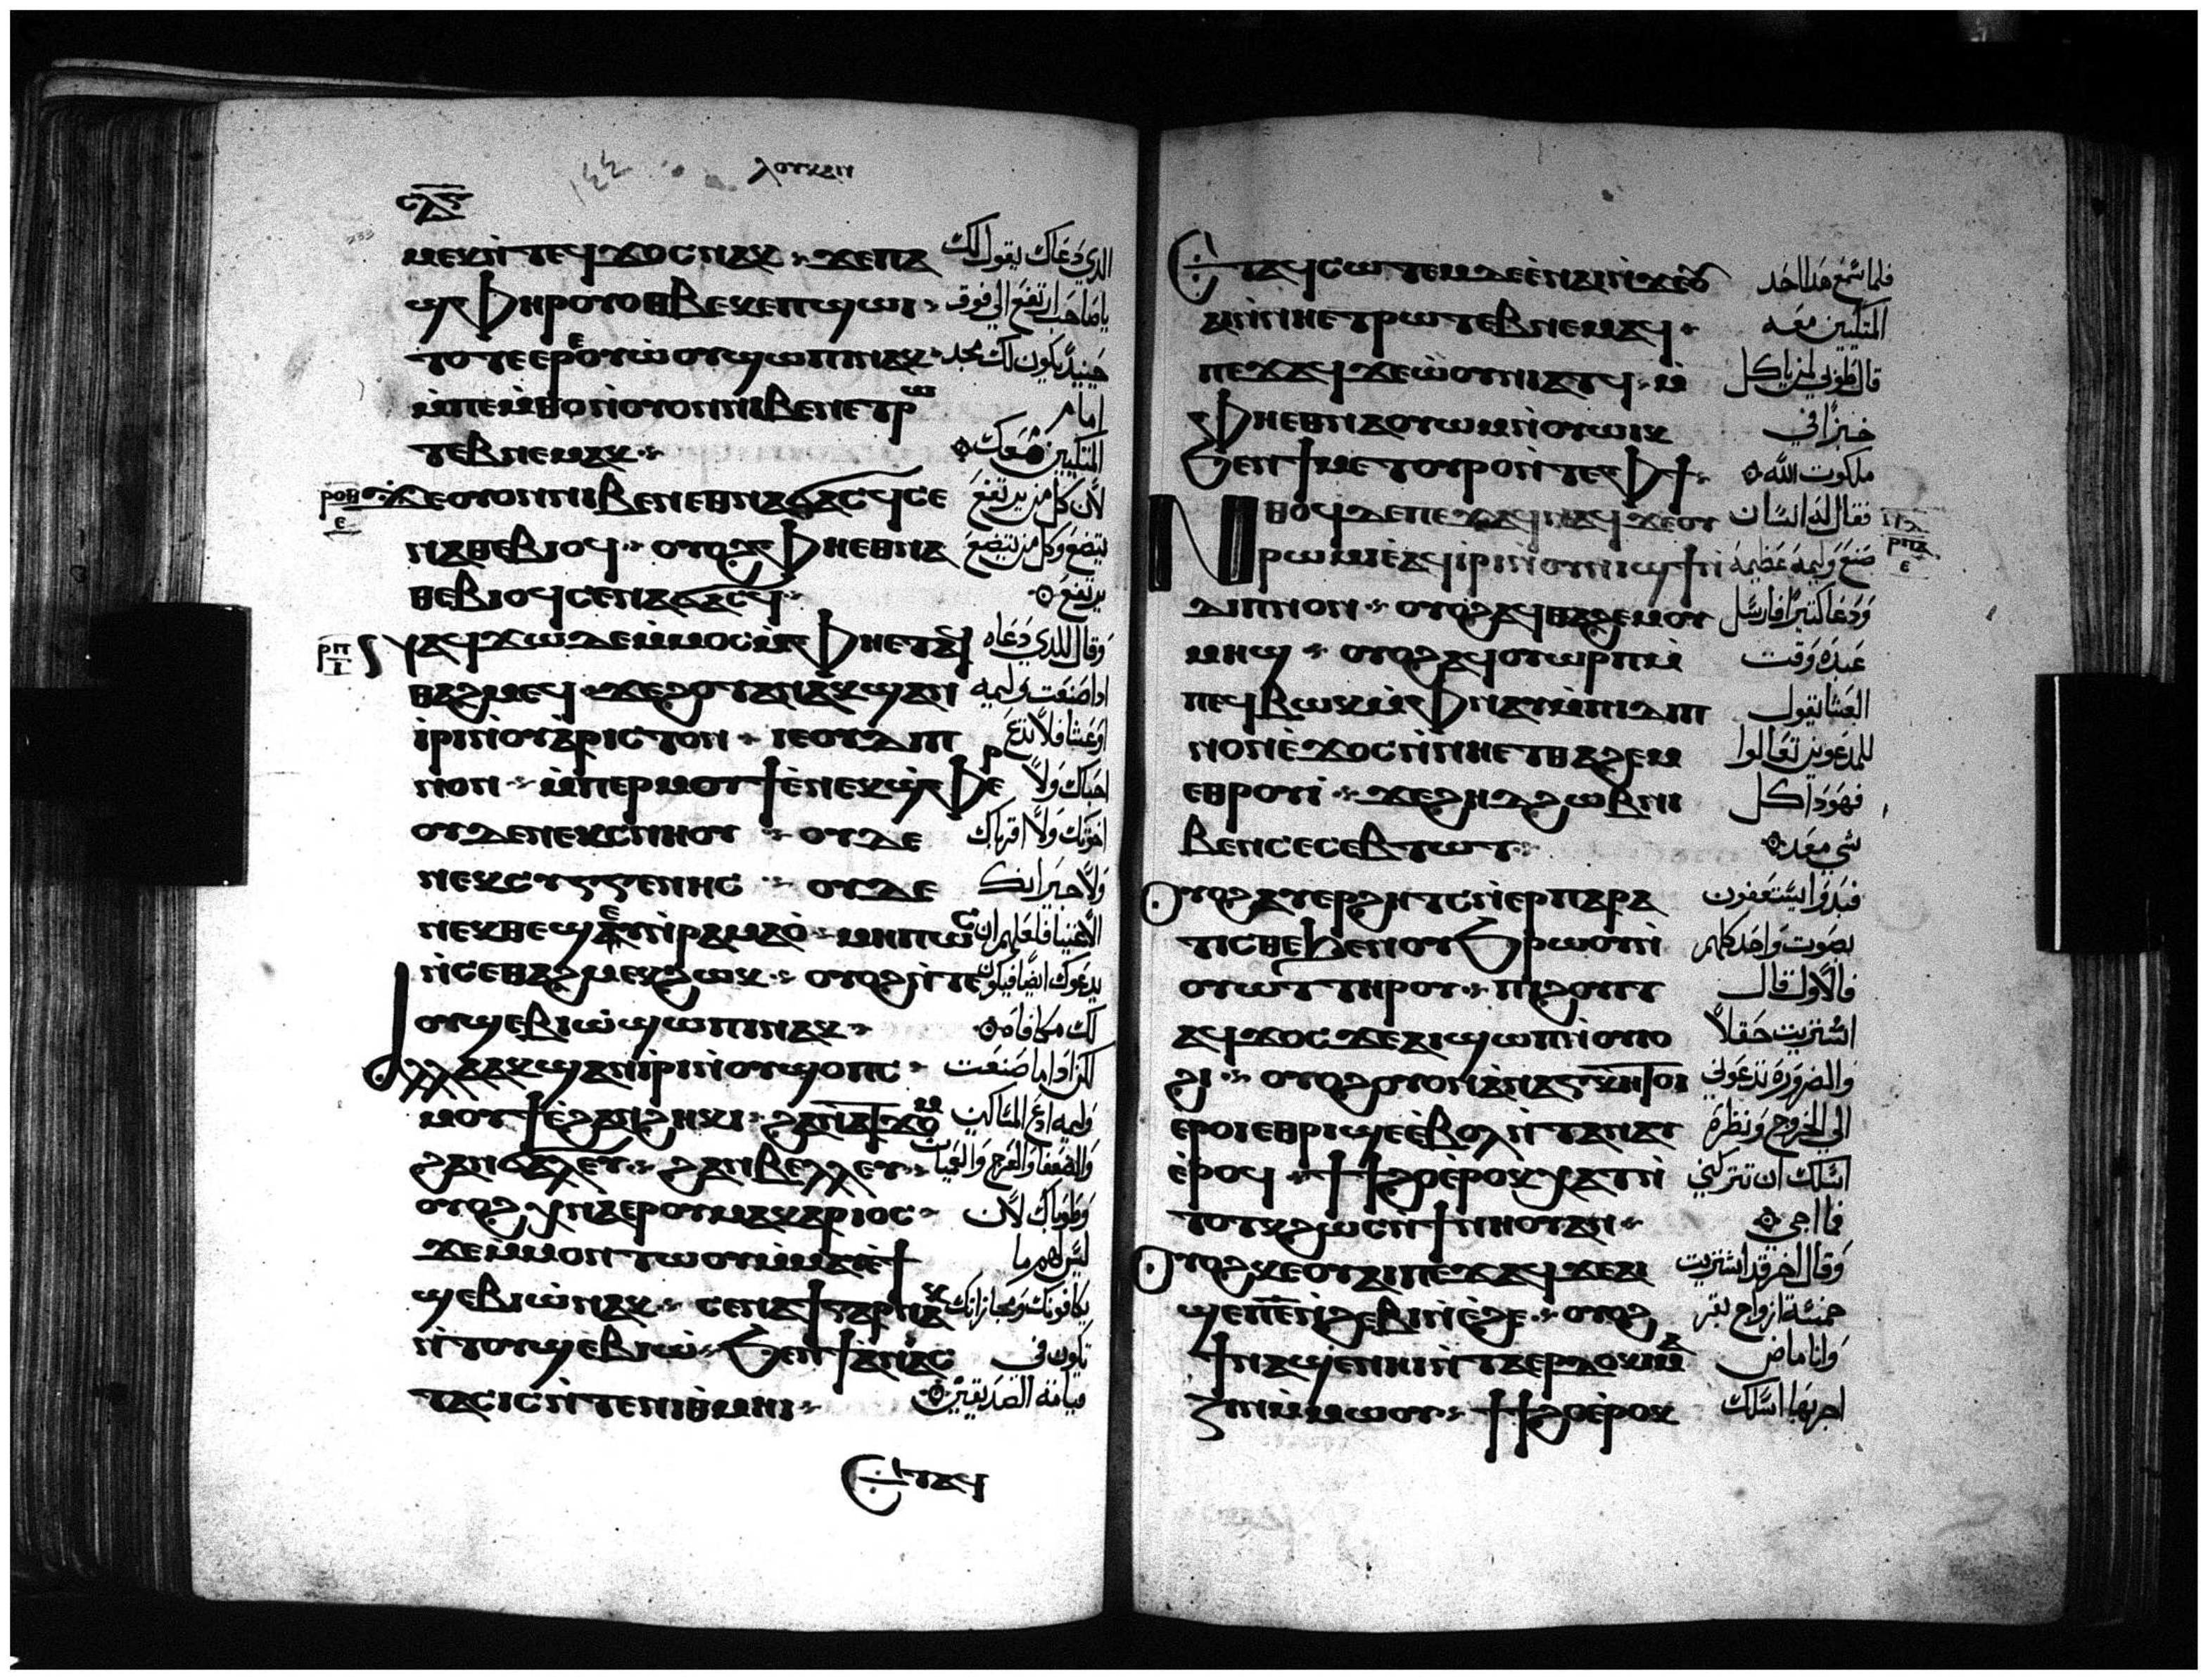 ⲗⲟⲩⲕⲁⲛ
ⲥⲗⲋ
ⲙⲉⲕ ⲛ̀ⲧⲉϥϫⲟⲥ ⲛⲁⲕ ϫⲉ ⲡⲁ الذي دعاك يقول لك
ϣ̀ⲫⲏⲣ ⲟⲩⲟⲑⲃⲉⲕ ⲉⲡϣⲱⲓ يا صاحب ارتفع الي فوق
ⲧⲟⲧⲉ ⲉⲣⲉⲟⲩⲱ̀ⲟⲩ ϣⲱⲡⲓ ⲛⲁⲕ حينيذ يكون لك مجد
ⲙ̀ⲡⲉⲙ̀ⲑⲟ ⲛ̀ⲟⲩⲟⲛ ⲛⲓⲃⲉⲛ ⲉⲧⲣⲱ امام
ⲧⲉⲃ ⲛⲉⲙⲁⲕ المتكيين معك
ⲣⲟⲑ ⲉ
ϫⲉ ⲟⲩⲟⲛ ⲛⲓⲃⲉⲛ ⲉⲑⲛⲁϭⲁⲥϥ ⲥⲉ لان كل من يرتفع
ⲛⲁⲑⲉⲃⲓⲟϥ ⲟⲩⲟϩ ⲫⲏ ⲉⲑⲛⲁ يتضع وكل من يتضع
ⲑⲉⲃⲓⲟϥ ⲥⲉⲛⲁϭⲁⲥϥ يرتفع
ⲣⲡ ⲓ
ⲛⲁϥϫⲱ ⲇⲉ ⲙ̀ⲙⲟⲥ ⲙ̀ⲫⲏ ⲉⲧⲁϥ وقال للذي دعاه
ⲑⲁϩⲙⲉϥ ϫⲉ ϩⲟⲧⲁⲛ ⲁⲕϣⲁⲛ اذا صنعت وليمه
ⲓ̀ⲣⲓ ⲛ̀ⲟⲩⲁ̀ⲣⲓⲥⲧⲟⲛ ⲓⲉ ⲟⲩⲇⲓⲡ او عشا فلا تدع
ⲛⲟⲛ ⲙ̀ⲡⲉⲣⲙⲟⲩϯ ⲉ̀ⲛⲉⲕϣ̀ⲫⲉⲣ احباك ولا
ⲟⲩⲇⲉ ⲛⲉⲕⲥⲛⲏⲟⲩ ⲟⲩⲇⲉ اخوتك ولا اقرباك
ⲛⲉⲕⲥⲩⲅⲅⲉⲛⲏⲥ ⲟⲩⲇⲉ ولا جيرانك
ⲛⲉⲕⲑⲉϣⲉⲩ ⲛ̀ⲣⲁⲙⲁⲟ̀ ⲙⲏⲡⲱⲥ الاغنيا فلعلهم ان
ⲛ̀ⲥⲉⲑⲁϩⲙⲉⲕ ϩⲱⲕ ⲟⲩⲟϩ ⲛ̀ⲧⲉ يدعوك ايضا فيكون
ⲟⲩϣⲉⲃⲓⲱ̀ ϣⲱⲡⲓ ⲛⲁⲕ لك مكافاه
ⲁⲗⲗⲁ ⲁⲕϣⲁⲛⲓ̀ⲣⲓ ⲛ̀ⲟⲩϣⲟⲡⲥ لكن اذا ما صنعت
ⲙⲟⲩϯ ⲉ̀ϩⲁⲛϩⲏⲕⲓ ϩⲁⲛⲁⲧϫⲟⲙ وليمه ادع المساكين
ϩⲁⲛϭⲁⲗⲉⲩ ϩⲁⲛⲃⲉⲗⲗⲉⲩ والضعفا والعرج والعميان
ⲟⲩⲟϩ ⲭ̀ⲛⲁⲉⲣⲟⲩⲙⲁⲕⲁⲣⲓⲟⲥ وطوباك لان
ϫⲉ ⲙ̀ⲙⲟⲛ ⲧⲱⲟⲩ ⲙ̀ⲙⲁⲩ ⲉ̀ϯ ليس لهم ما
ϣⲉⲃⲓⲱ̀ ⲛⲁⲕ ⲥⲉⲛⲁϯ ⲅⲁⲣ ⲛⲁⲕ يكافونك ومجازاتك
ⲛ̀ⲧⲟⲩϣⲉⲃⲓⲱ̀ ϧⲉⲛ ϯⲁⲛⲁⲥ تكون في
ⲧⲁⲥⲓⲥ ⲛ̀ⲧⲉ ⲛⲓⲑ̀ⲙⲏⲓ قيامة الصديقين
ⲉⲧⲁϥ
ⲉⲧⲁϥⲥⲱⲧⲉⲙ ⲇⲉ ⲉ̀ⲛⲁⲓ ⲛ̀ϫⲉ ⲟⲩ فلما سمع هذا احد
ⲁⲓ ⲛ̀ⲛⲏ ⲉⲧⲣⲱⲧⲉⲃ ⲛⲉⲙⲁϥ المتكيين معه
ⲡⲉϫⲁϥ ϫⲉ ⲱ̀ⲟⲩⲛⲓⲁⲧϥ ⲙ̀ قال طوبي لمن ياكل
ⲫⲏ ⲉⲑⲛⲁⲟⲩⲱⲙ ⲛ̀ⲟⲩⲱⲓⲕ خبزا في
ϧⲉⲛ ϯⲙⲉⲧⲟⲩⲣⲟ ⲛ̀ⲧⲉ ⲫϯ ملكوت الله
ⲛⲑⲟϥ ⲇⲉ ⲡⲉϫⲁϥ ⲛⲁϥ ϫⲉ ⲟⲩ فقال له انسان
ⲣⲱⲙⲓ ⲉ̀ⲁϥⲓ̀ⲣⲓ ⲛ̀ⲟⲩⲛⲓϣϯ ⲛ̀ صنع وليمه عظيمه
ⲣⲡⲁ ⲉ
ⲇⲓⲡⲛⲟⲛ ⲟⲩⲟϩ ⲁϥⲑⲁϩⲉⲙ ⲟⲩ ودعا كثيرا فارسل
ⲙⲏϣ ⲟⲩⲟϩ ⲁϥⲟⲩⲱⲣⲡ ⲙ̀ عبده وقت
ⲡⲉϥⲃⲱⲕ ⲙ̀ⲫⲛⲁⲩ ⲙ̀ⲡⲓⲇⲓⲡ العشا يقول
ⲛⲟⲛ ⲉ̀ϫⲟⲥ ⲛ̀ⲛⲏ ⲉⲧⲑⲁϩⲉⲙ للمدعوين تعالوا
ⲉⲑⲣⲟⲩⲓ̀ ϫⲉ ϩⲏⲇⲏ ϩⲱⲃ ⲛⲓ فهوذا كل
ⲃⲉⲛ ⲥⲉⲥⲉⲃⲧⲱⲧ شي معد
ⲟⲩⲟϩ ⲁⲩⲉⲣϩⲏⲧⲥ ⲛ̀ⲉⲣⲡⲁⲣⲁ فبدوا يستعفون
ⲧⲓⲥⲑⲉ ϧⲉⲛ ⲟⲩϧ̀ⲣⲱⲟⲩ ⲛ̀ بصوت واحد كلهم
ⲟⲩⲱⲧ ⲧⲏⲣⲟⲩ ⲡⲓϩⲟⲩⲓⲧ فالاول قال
ⲁϥϫⲟⲥ ϫⲉ ⲁⲓϣⲱⲡ ⲛ̀ⲟⲩⲓⲟ اشتريت حقلا
ϩⲓ ⲟⲩⲟϩ ⲟⲩⲟⲛ ⲁ̀ⲛⲁⲅⲕⲏ ⲧⲟⲓ والضرورة تدعوني
ⲉ̀ⲣⲟⲓ ⲉⲑⲣⲓϣⲉ ⲉ̀ⲃⲟⲗ ⲛ̀ⲧⲁⲛⲁⲩ الي الخروج ونظره
ⲉ̀ⲣⲟϥ ϯϯϩⲟ ⲉ̀ⲣⲟⲕ ⲭⲁⲧ ⲛ̀ اسلك ان تتركني
ⲧⲟⲧⲕ ϩⲱⲥ ⲛ̀ϯⲛⲏⲟⲩ ⲁⲛ فما اجي
ⲟⲩⲟϩ ⲕⲉⲟⲩⲁⲓ ⲡⲉϫⲁϥ ϫⲉ ⲁⲓ وقال اخر قد اشتريت
ϣⲉⲡ ⲉ̅ ⲛ̀ϩⲉⲃⲓ ⲛ̀ⲉ̀ϩⲉ ⲟⲩⲟϩ خمسة ازواج بقر
ϯⲛⲁϣⲉⲛⲏⲓ ⲛ̀ⲧⲁⲉⲣⲇⲟⲕⲓⲙⲁ وانا ماض
ⲍⲓⲛ ⲙ̀ⲙⲱⲟⲩ ϯϯϩⲟ ⲉ̀ⲣⲟⲕ اجربها اسلك